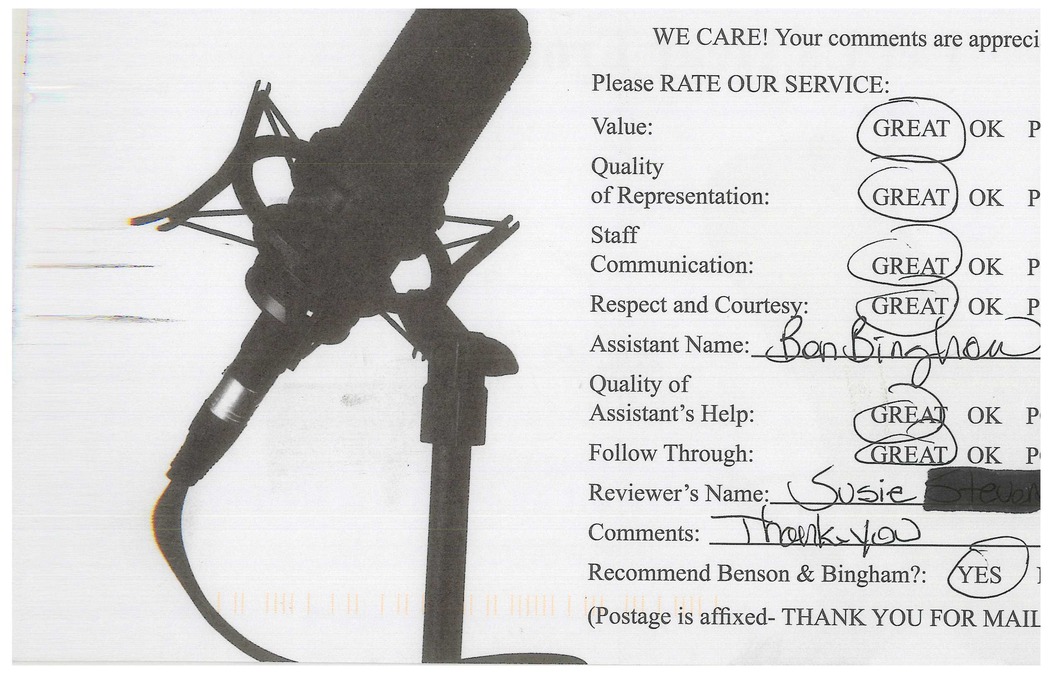 WE CARE! Your comments are appreci
Please RATE OUR SERVICE:
Value: GREAT OK P
Quality
of Representation: GREAT OK P
Staff
Communication: GREAT OK P
Respect and Courtesy: GREAT OK P
Assistant Name: Ban Bingham
Quality of
Assistant's Help: GREAT OK PO
Follow Through: GREAT OK P
Reviewer's Name: Susie
Comments: Thank you
Recommend Benson & Bingham?: YES
(Postage is affixed- THANK YOU FOR MAIL